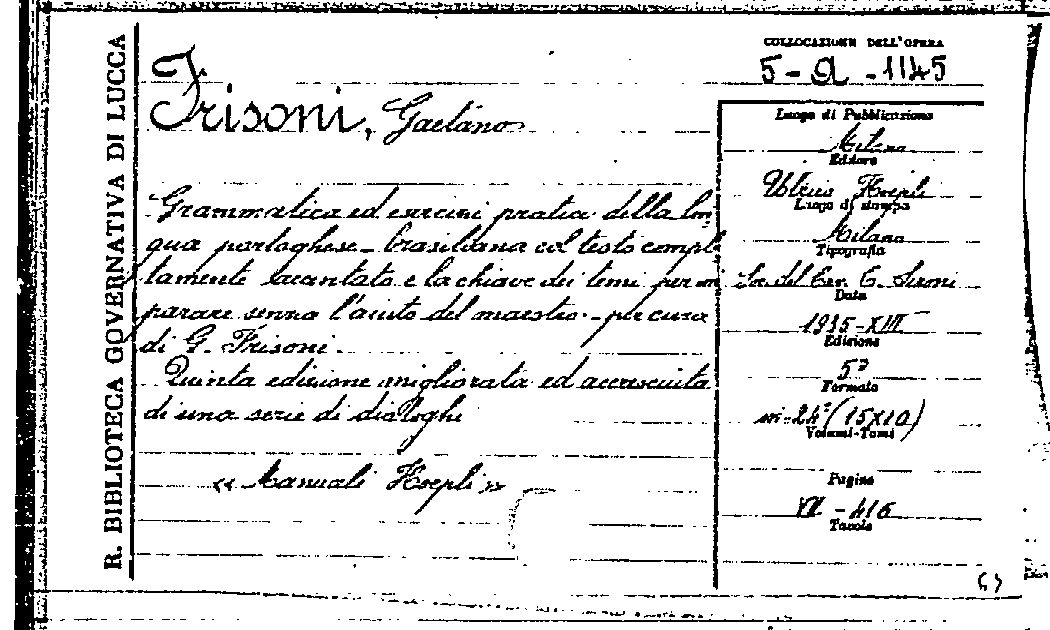 R. BIBLIOTECA GOVERNATIVA DI LUCCA
COLLOCAZIONE DELL'OPERA
5-a-1145
Frisoni, Gaetano
Grammatica ed esercizi pratici della lin
gua portoghese-brasiliana col testo comple
tamente accentato e la chiave dei temi per im
parare senza l'aiuto del maestro. - per cura
di G. Frisoni.
Quinta edizione migliorata ed accresciuta
di una serie di dialoghi
« Manuali Hoepli »
Luogo di Pubblicazione
Milano
Editore
Ulrico Hoepli
Luogo di stampa
Milano
Tipografia
Soc. del C. Sironi
Data
1935-XIII
Edizione
5ª
Formato
in-24° (15X10)
Volumi-Tomi
Pagine
VII - 416
Tavole